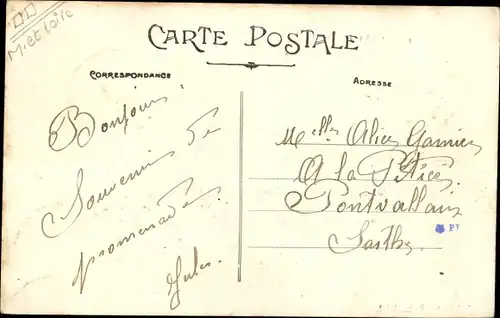 M-et-Loire
CARTE POSTALE
CORRESPONDANCE
ADRESSE
Bonjour
Souvenir de
promenade
Jules
Melles Alice Garnier
A la
Pontvallain
Sarthe